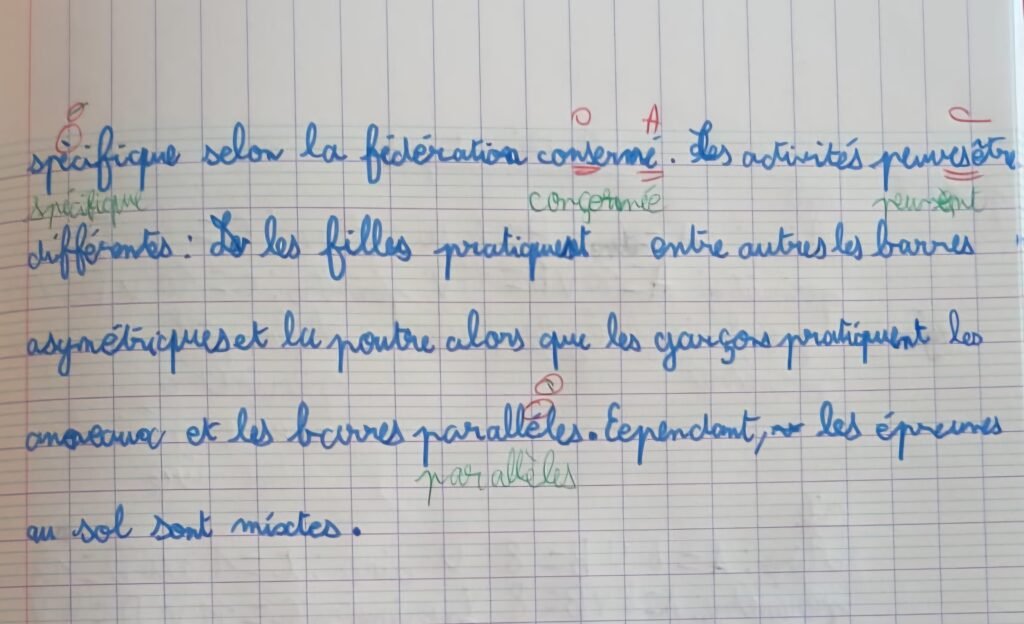 O A C
spècifique selon la fédération consermé. Les activités peuves être
spécifique conçernnée peuvent
différentes : les filles pratiquent entre autres les barres
asymétriques et la poutre alors que les garçons pratiquent les
anneaux et les barres paralléles. Cependant, les épreuves
parallèles
au sol sont mixtes.